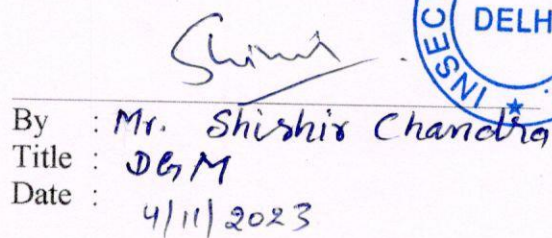 DELH
INSEC
By : Mr. Shishir Chandra
Title : DGM
Date : 4/11/2023